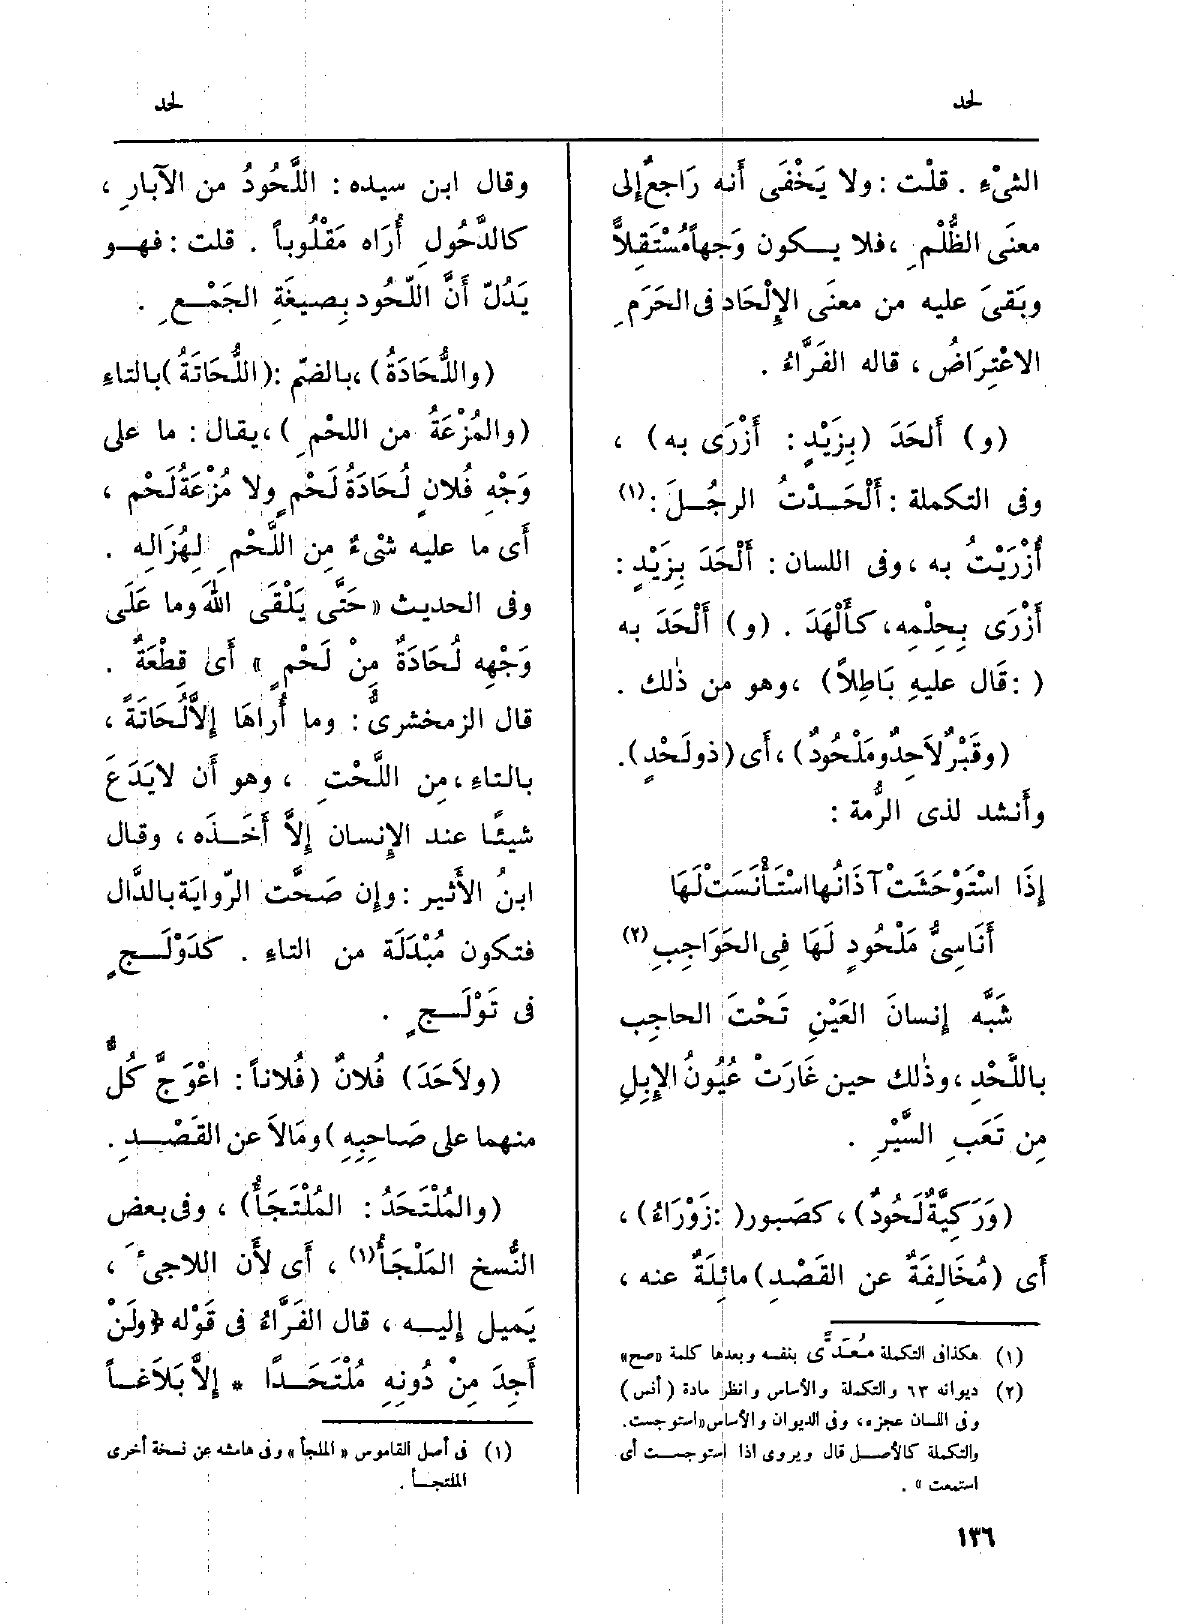 لحد
لحد
الشيْءِ . قلْت : ولا يَخْفَى أَنه رَاجعٌ إِلى
معنَى الظُّلْمِ ، فلا يكون وَجهاً مُسْتَقِلاًّ
وبَقىَ عليه من معنَى الإِلْحَاد فى الحَرَمِ
الاعْتِرَاضُ ، قاله الفَرَّاءُ .
(و) أَلحَدَ (بِزَيْدٍ : أَزْرَى به) ،
وفى التكملة : أَلْحَدْتُ الرجُلَ : (١)
أَزْرَيْتُ به ، وفى اللسان : أَلْحَدَ بِزَيْدٍ :
أَزْرَى بِحِلْمِه، كأَلْهَدَ . (و) أَلْحَدَ به
( : قَال عليهِ بَاطِلاً) ، وهو من ذٰلك .
(وقَبْرٌ لاَحِدٌ ومَلْحُودٌ) ، أَى (ذو لَحْدٍ).
وأَنشد لذى الرُّمة :
إِذَا اسْتَوْحَشَتْ آذَانُها اسْتَأْنَسَتْ لَهَا
أَنَاسِىُّ مَلْحُودٍ لَهَا فِى الحَوَاجِبِ (٢)
شَبَّه إِنسانَ العَيْنِ تَحْتَ الحاجِب
باللَّحْدِ ، وذٰلك حين غَارَتْ عُيُونُ الإِبِلِ
مِن تَعَبِ السَّيْرِ .
(وَرَكِيَّةٌ لَحُودٌ) ، كصَبور ( : زَوْرَاءُ) ،
أَى (مُخَالِفَةٌ عن القَصْد) مائِلَةٌ عنه ،
(١) هكذا فى التكملة مُعَدًّى بنفسه وبعدها كلمة «صح»
(٢) ديوانه ٦٣ والتكملة والأساس وانظر مادة (أنس)
وفى اللسان عجزه، وفى الديوان والأساس «استوجست.
والتكملة كالأصل قال ويروى اذا استوجست أى
استمعت» .
وقال ابن سيده : اللَّحُودُ من الآبارِ ،
كالدَّحُولِ أُرَاه مَقْلُوباً . قلت : فهو
يَدُلّ أَنَّ اللّحُود بِصيغَةِ الجَمْعِ .
(واللُّحَادَةُ) ، بالضمّ : (اللُّحَاتَةُ) بالتاءِ
(والمُزْعَةُ من اللحْمِ) ، يقال : ما على
وَجْهِ فُلانٍ لُحَادَةُ لَحْمٍ ولا مُزْعَةُ لَحْمٍ ،
أَى ما عليه شىْءٌ مِن اللَّحْمِ لِهُزَالِه .
وفى الحديث «حَتَّى يَلْقَى اللهَ وما عَلَى
وَجْهِه لُحَادَةٌ مِنْ لَحْمٍ» أَى قِطْعَةٌ .
قال الزمخشرىُّ : وما أُراهَا إِلاَّ لُحَاتَةً ،
بالتاءِ ، مِن اللَّحْتِ ، وهو أَن لا يَدَعَ
شيئًا عند الإِنسان إِلاَّ أَخَذَه ، وقال
ابنُ الأَثير : وإِن صَحَّت الرّوايَة بالدَّال
فتكون مُبْدَلَة من التاءِ . كَدَوْلَجٍ
فى تَوْلَجٍ .
(ولاَحَدَ) فُلانٌ (فُلاناً : اعْوَجَّ كُلٌّ
منهما على صَاحِبِه) ومَالاَ عن القَصْدِ .
(والمُلْتَحَدُ : المُلْتَجَأُ) ، وفى بعض
النُّسخ المَلْجَأُ (١) ، أَى لأَن اللاجىءَ ،
يَميل إِليه ، قال الفَرَّاءُ فى قَوْله ﴿ولَنْ
أَجِدَ مِنْ دُونِهِ مُلْتَحَدًا * إِلاَّ بَلاَغاً
(١) فى أصل القاموس «الملجأ» وفى هامشه عن نسخة أخرى
الملتجأ .
١٣٦